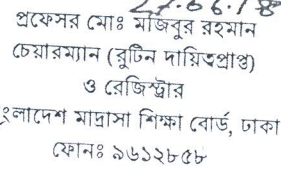 ২৭.০৬.১৪
প্রফেসর মোঃ মজিবুর রহমান
চেয়ারম্যান (রুটিন দায়িত্বপ্রাপ্ত)
ও রেজিস্ট্রার
ংলাদেশ মাদ্রাসা শিক্ষা বোর্ড, ঢাকা
ফোনঃ ৯৬১২৮৫৮